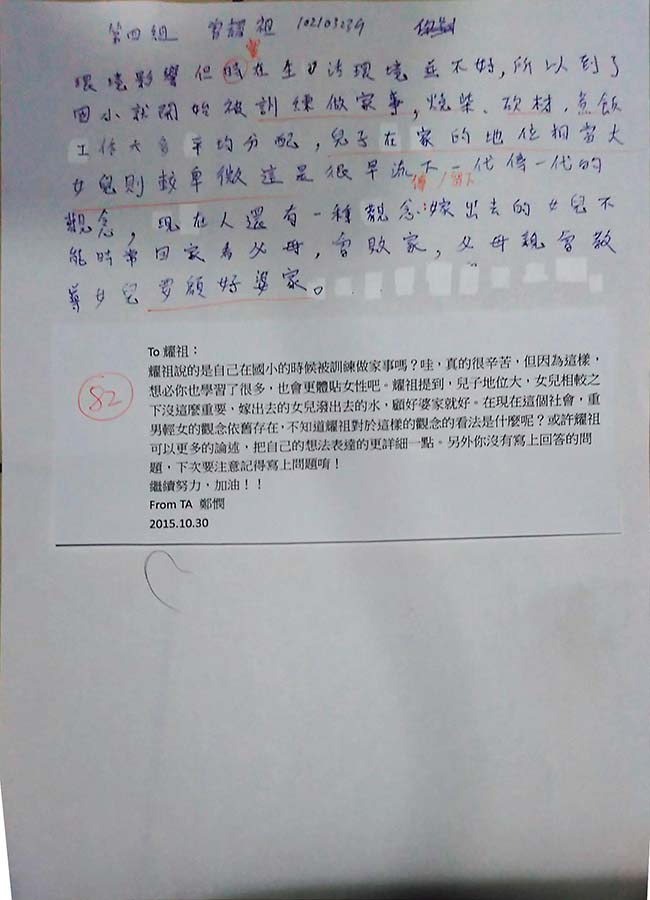 第四組 曾耀祖 10210323G
當
環境影響但時在生活環境並不好,所以到了
国小就開始被訓練做家事,燒柴、砍材、煮飯
工作大多平均分配,兒子在家的地位相當大
女兒則較卑微這是很早流下一代傳一代的
傳/留下
觀念,現在人還有一種觀念:嫁出去的女兒不
能時常回家看父母,會敗家,父母親會教
導女兒要顧好婆家。
To 耀祖:
耀祖說的是自己在國小的時候被訓練做家事嗎?哇,真的很辛苦,但因為這樣,
想必你也學習了很多,也會更體貼女性吧。耀祖提到,兒子地位大,女兒相較之
下沒這麼重要,嫁出去的女兒潑出去的水,顧好婆家就好。在現在這個社會,重
男輕女的觀念依舊存在,不知道耀祖對於這樣的觀念的看法是什麼呢?或許耀祖
可以更多的論述,把自己的想法表達的更詳細一點。另外你沒有寫上回答的問
題,下次要注意記得寫上問題唷!
繼續努力,加油!!
From TA 鄭憫
2015.10.30
82